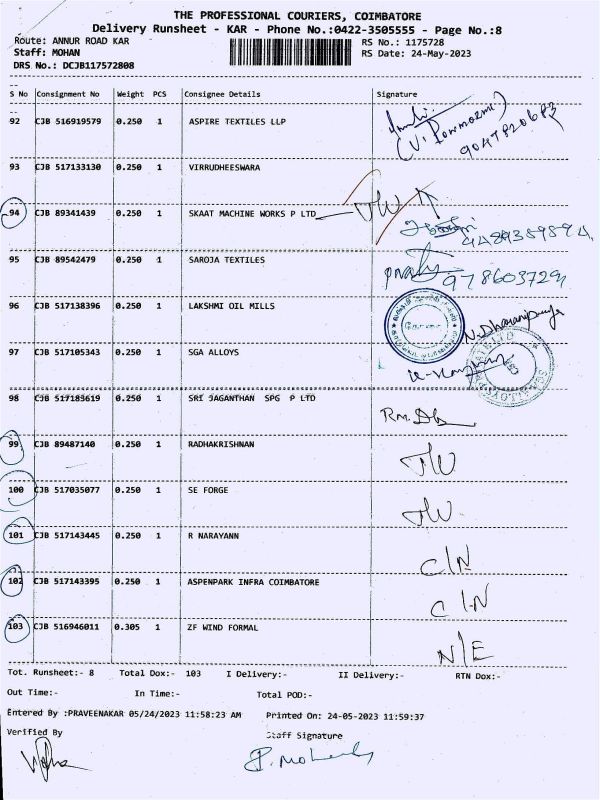 THE PROFESSIONAL COURIERS, COIMBATORE
Delivery Runsheet - KAR - Phone No.:0422-3505555 - Page No.:8
Route: ANNUR ROAD KAR RS No.: 1175728
Staff: MOHAN RS Date: 24-May-2023
DRS No.: DCJB117572808
S No Consignment No Weight PCS Consignee Details Signature
92 CJB 516919579 0.250 1 ASPIRE TEXTILES LLP
9047820683
93 CJB 517133130 0.250 1 VIRRUDHEESWARA
94 CJB 89341439 0.250 1 SKAAT MACHINE WORKS P LTD
95 CJB 89542479 0.250 1 SAROJA TEXTILES
96 CJB 517138396 0.250 1 LAKSHMI OIL MILLS
97 CJB 517105343 0.250 1 SGA ALLOYS
98 CJB 517185619 0.250 1 SRI JAGANTHAN SPG P LTD
99 CJB 89487140 0.250 1 RADHAKRISHNAN
100 CJB 517035077 0.250 1 SE FORGE
101 CJB 517143445 0.250 1 R NARAYANN
C/N
102 CJB 517143395 0.250 1 ASPENPARK INFRA COIMBATORE
C/N
103 CJB 516946011 0.305 1 ZF WIND FORMAL
N/E
Tot. Runsheet:- 8 Total Dox:- 103 I Delivery:- II Delivery:- RTN Dox:-
Out Time:- In Time:- Total POD:-
Entered By :PRAVEENAKAR 05/24/2023 11:58:23 AM Printed On: 24-05-2023 11:59:37
Verified By Staff Signature